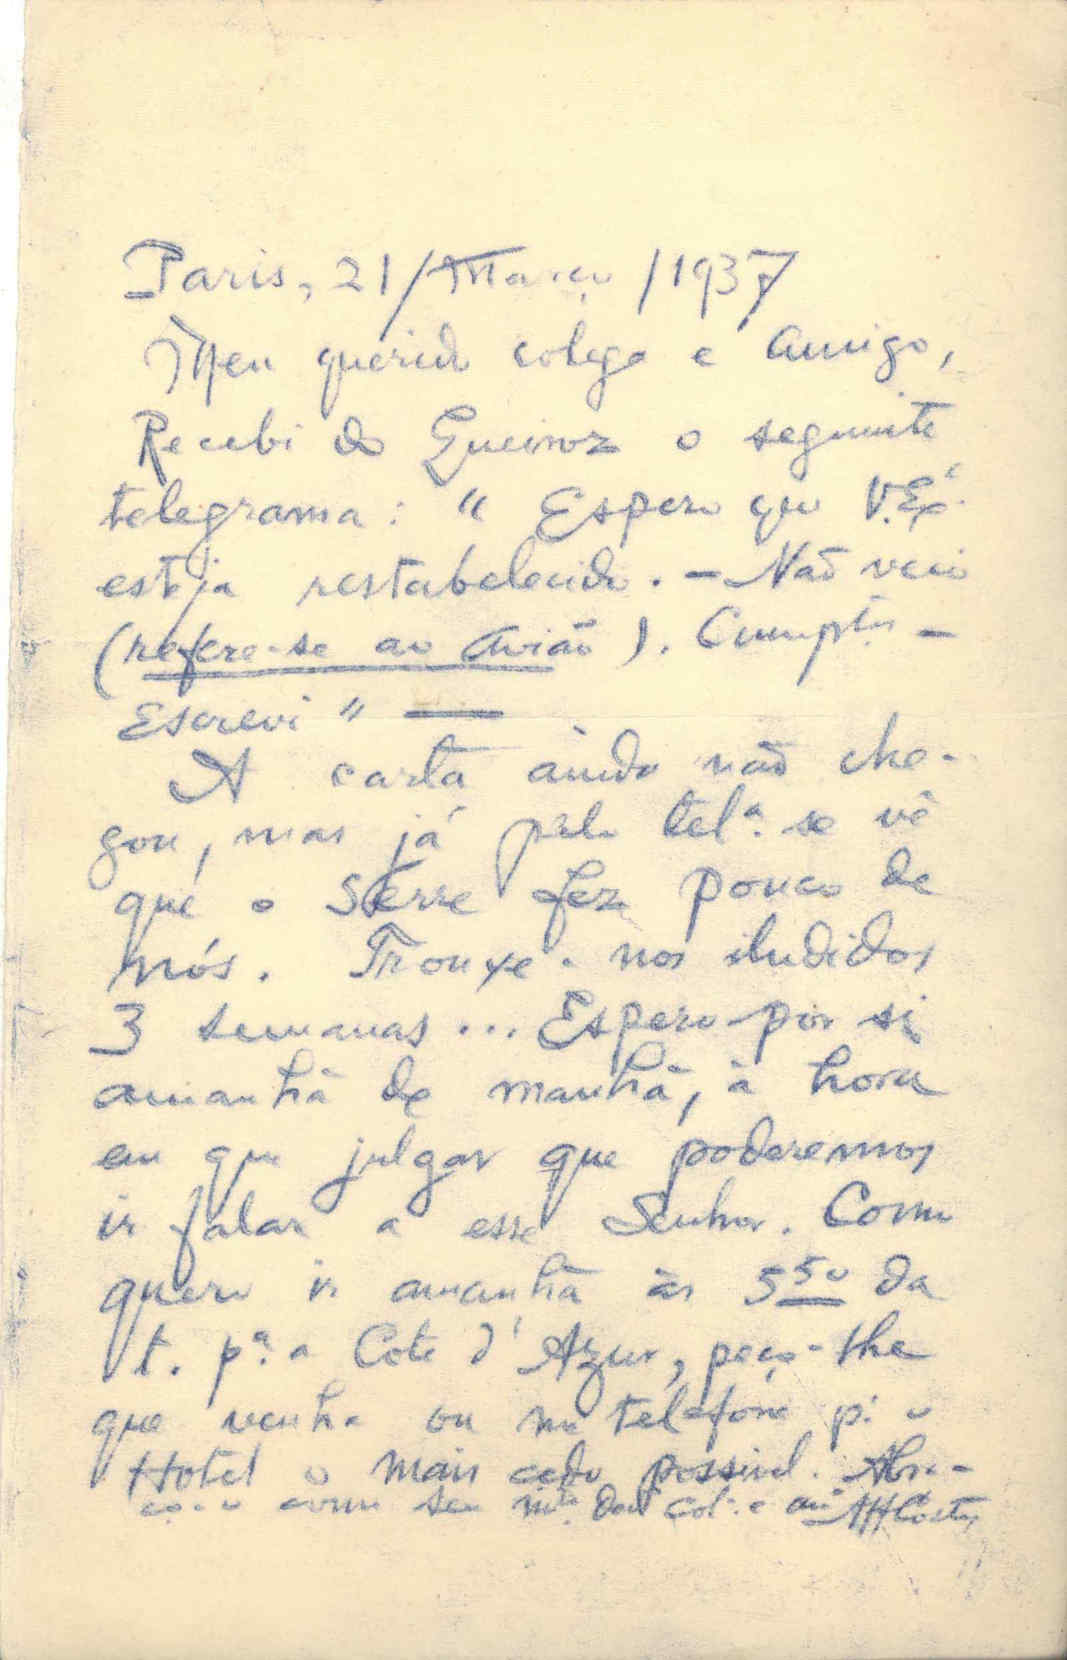 Paris, 21/Março/1937
Meu querido colega e amigo,
Recebi do Queiroz o seguinte
telegrama: " Espero que V. Exª.
esteja restabelecido. - Não veio
(refere-se ao avião). Cumptos -
Escrevi " —
A carta ainda não che-
gou, mas já pelo telª. se vê
que o Serre fez pouco de
nós. Trouxe-nos iludidos
3 semanas... Espero por si
amanhã de manhã, à hora
em que julgar que poderemos
ir falar a esse Senhor. Como
quero ir amanhã às 5 50 da
t. pª. a Cote d'Azur, peço-lhe
que venha ou me telefone p. o
Hotel o mais cedo possivel. Abra-
ça-o como seu mto. ded. col. e amº AHCosta